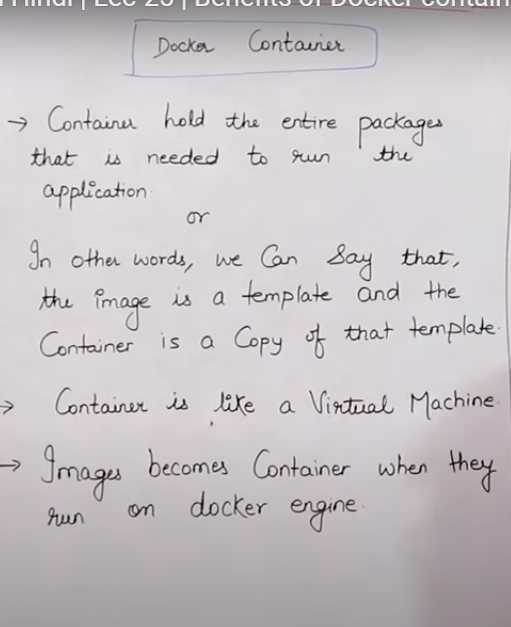 Hindi | Lec-25 | Benefits of Docker contain
Docker Container
→ Container hold the entire packages
that is needed to run the
application.
or
In other words, we Can Say that,
the image is a template and the
Container is a Copy of that template.
→ Container is like a Virtual Machine.
→ Images becomes Container when they
run on docker engine.